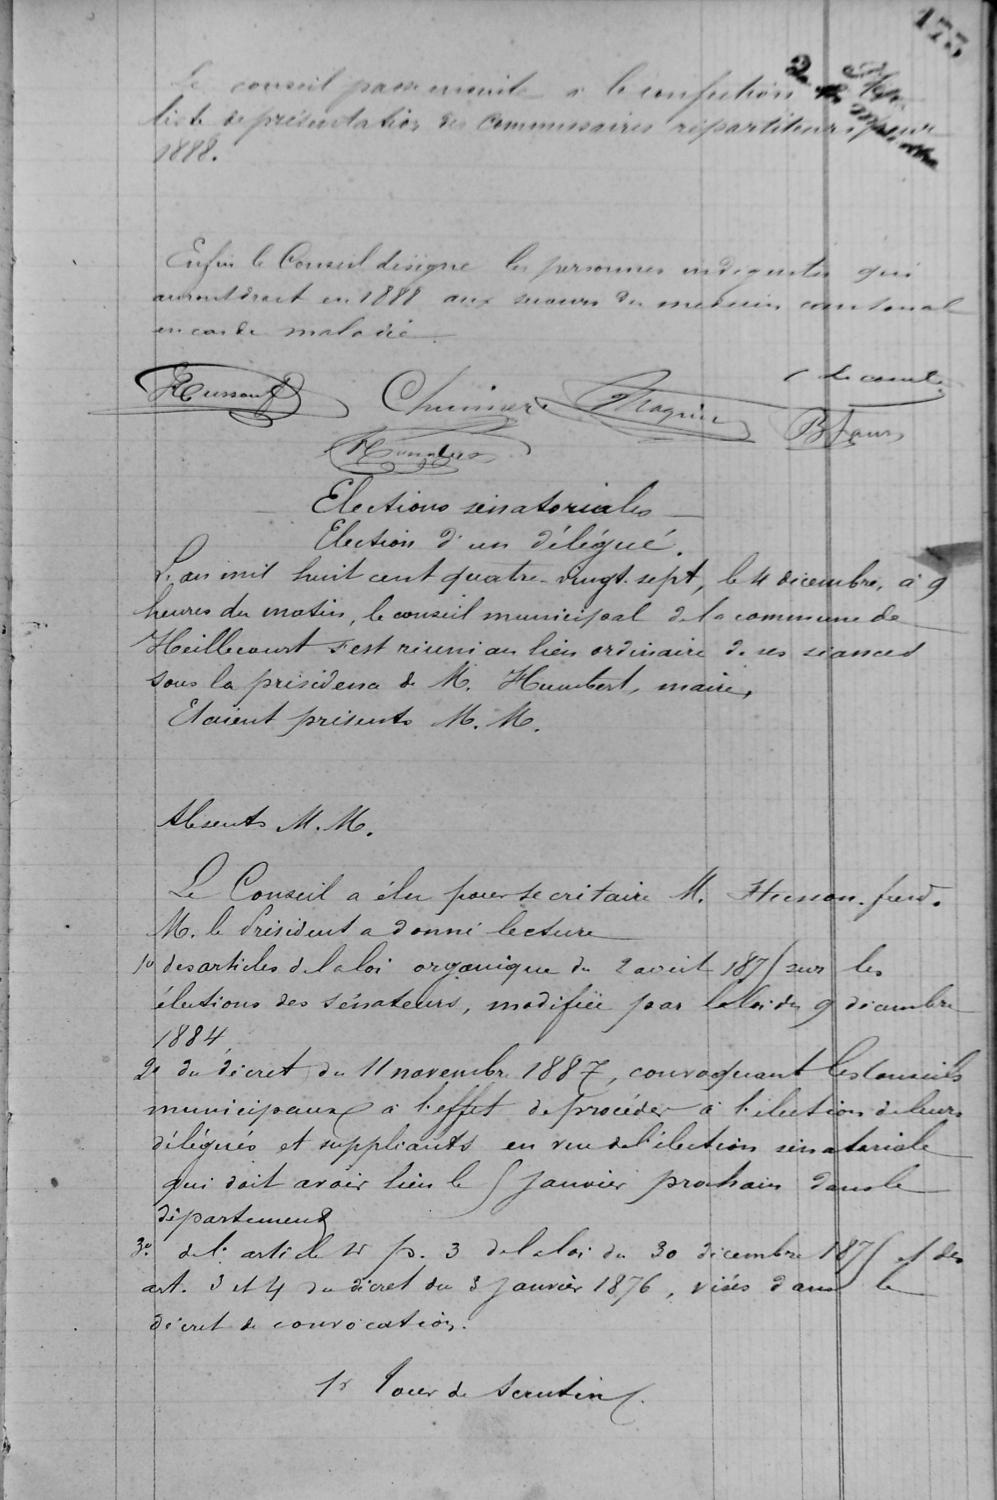 173
Le conseil passe ensuite à la confection de la
liste de présentation des commissaires répartiteurs pour
1888.
Enfin le Conseil désigne les personnes indigentes qui
auront droit en 1888 aux secours du médecin cantonal
en cas de maladie.
Husson
Elections sénatoriales
Election d'un délégué.
L'an mil huit cent quatre-vingt-sept, le 4 décembre, à 9
heures du matin, le conseil municipal de la commune de
Heillecourt s'est réuni au lieu ordinaire de ses séances
sous la présidence de M. Humbert, maire,
Etaient présents M. M.
Absents M. M.
Le Conseil a élu pour secrétaire M. Husson ferd.
M. le Président a donné lecture
1o des articles de la loi organique du 2 août 1875 sur les
élections des sénateurs, modifiée par la loi du 9 décembre
1884
2o du décret du 11 novembre 1887, convoquant les Conseils
municipaux à l'effet de procéder à l'élection de leurs
délégués et suppléants en vue de l'élection sénatoriale
qui doit avoir lieu le 5 Janvier prochain dans le
département
3o de l'article 1r p. 3 de la loi du 30 décembre 1875 et des
art. 3 et 4 du décret du 3 Janvier 1876, visés dans le
décret de convocation.
1r Tour de Scrutin.